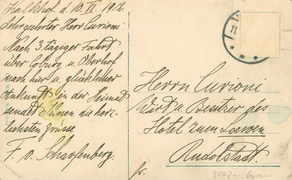 Kalkhof d. 10. II. 1912.
Sehr geehrter Herr Curioni
Nach 3 tägiger Fahrt
über Coburg u. Oberhof
nach hier u. glücklicher
Ankunft in der Heimat
sendet Ihnen die herz-
lichsten Grüsse
F. v. Scharfenberg.
Herrn Curioni
Besitzer des
Hotel zum Loewen
Rudolstadt.
fr.